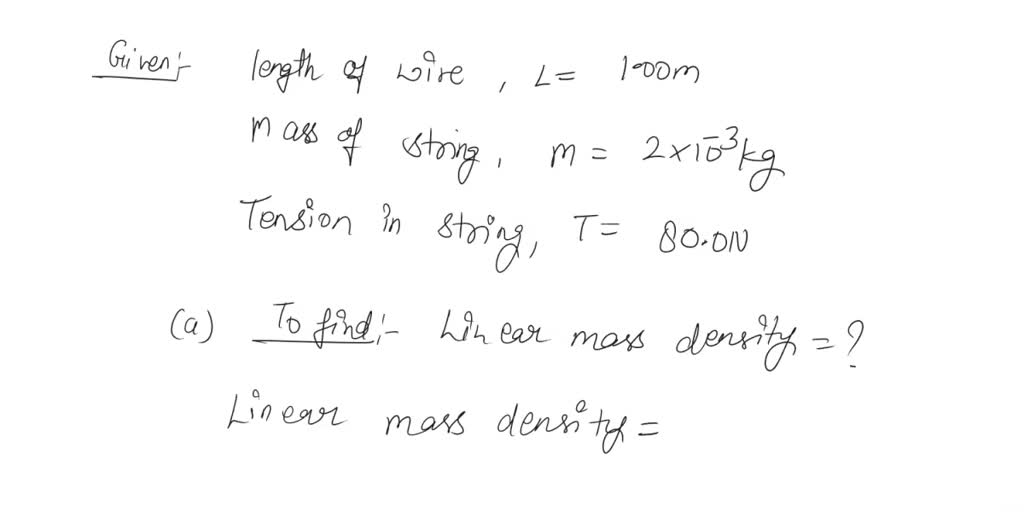 Given:- length of wire, L = 1.00m
mass of string, m = 2×10⁻³kg
Tension in string, T = 80.0N
(a) To find:- Linear mass density = ?
Linear mass density =